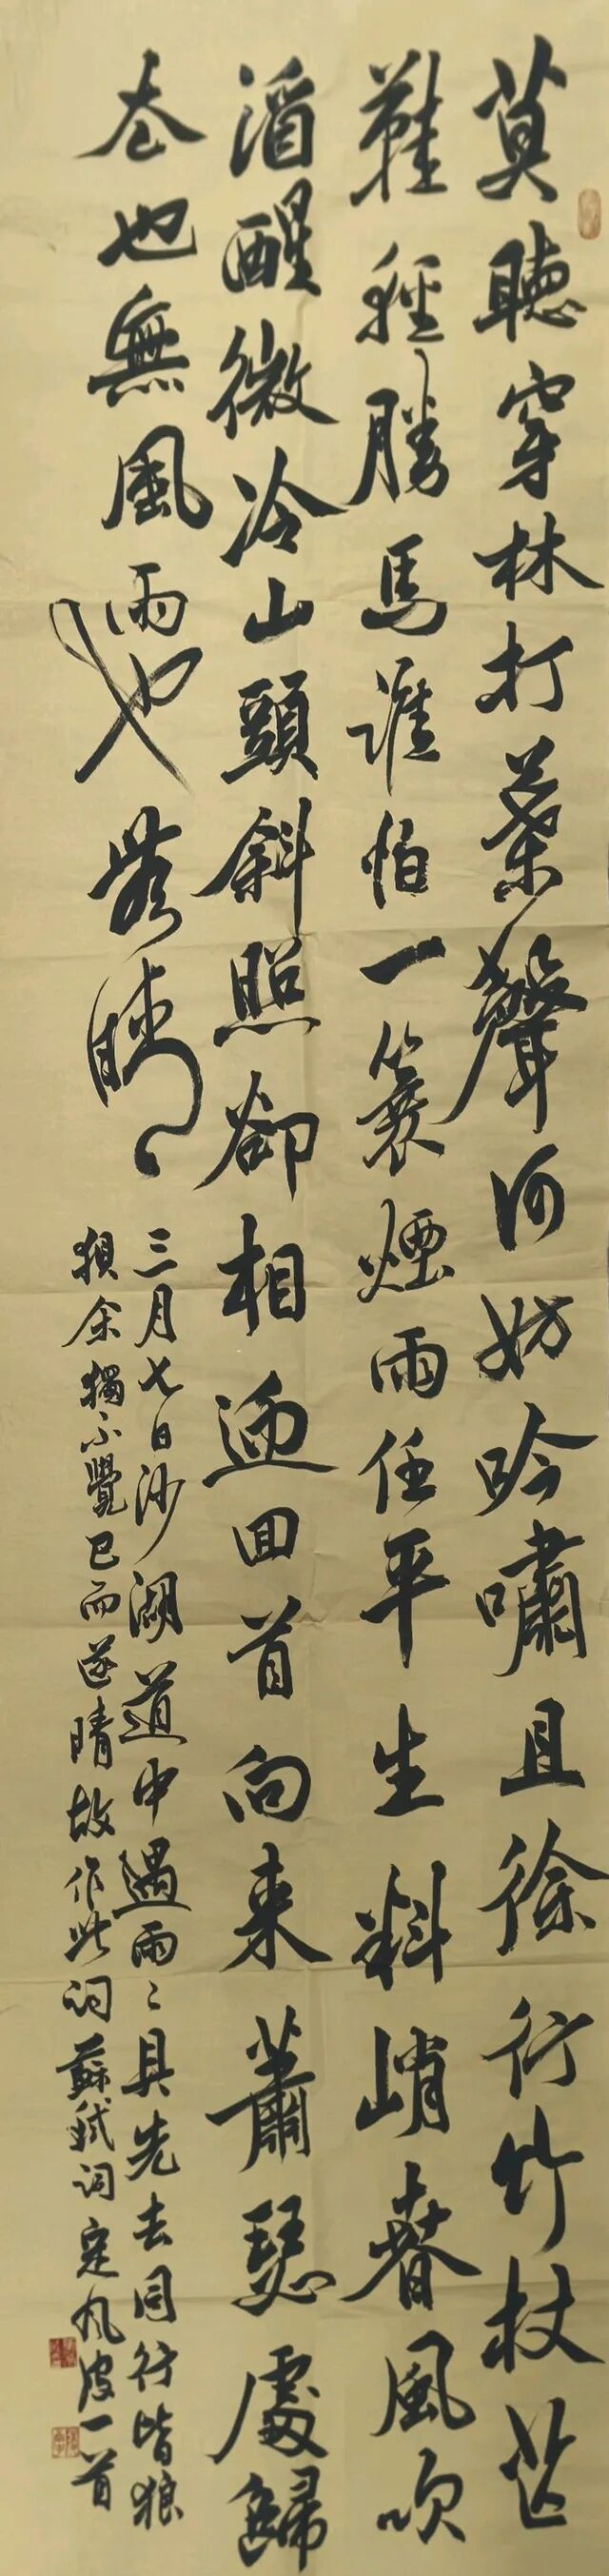 莫聽穿林打葉聲何妨吟嘯且徐行竹杖芒
鞋輕勝馬誰怕一蓑煙雨任平生料峭春風吹
酒醒微冷山頭斜照卻相迎回首向來蕭瑟處歸
去也無風雨也無晴
三月七日沙湖道中遇雨〻具先去同行皆狼
狽余獨不覺已而遂晴故作此詞蘇軾詞定風波一首